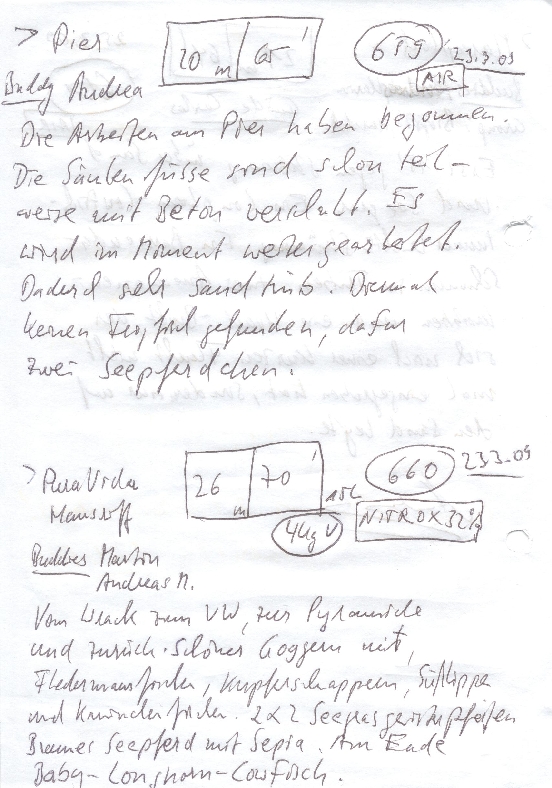 > Pier
20 m 65'
659 23.3.09
AIR
Buddy Andrea
Die Arbeiten am Pier haben begonnen.
Die Säulenfüsse sind schon teil-
weise mit Beton verschalt. Es
wird im Moment weitergearbeitet.
Dadurch sehr sandtrüb. Diesmal
keinen gefunden, dafür
zwei Seepferdchen.
> Pura Vida
Hausriff
26 m 70'
15L
660 23.3.09
4kg V
NITROX 32%
Buddies Martin
Andreas M.
Vom Wrack zum VW, zur Pyramide
und zurück. Schönes Goggeln mit
Fledermausfischen, Schnappern, Süßlippe
und Kaninchenfischen. 2x2 Seegrasgeisterpfeifen
Braunes Seepferd mit Sepia. Am Ende
Baby-Longhorn-Cowfisch.